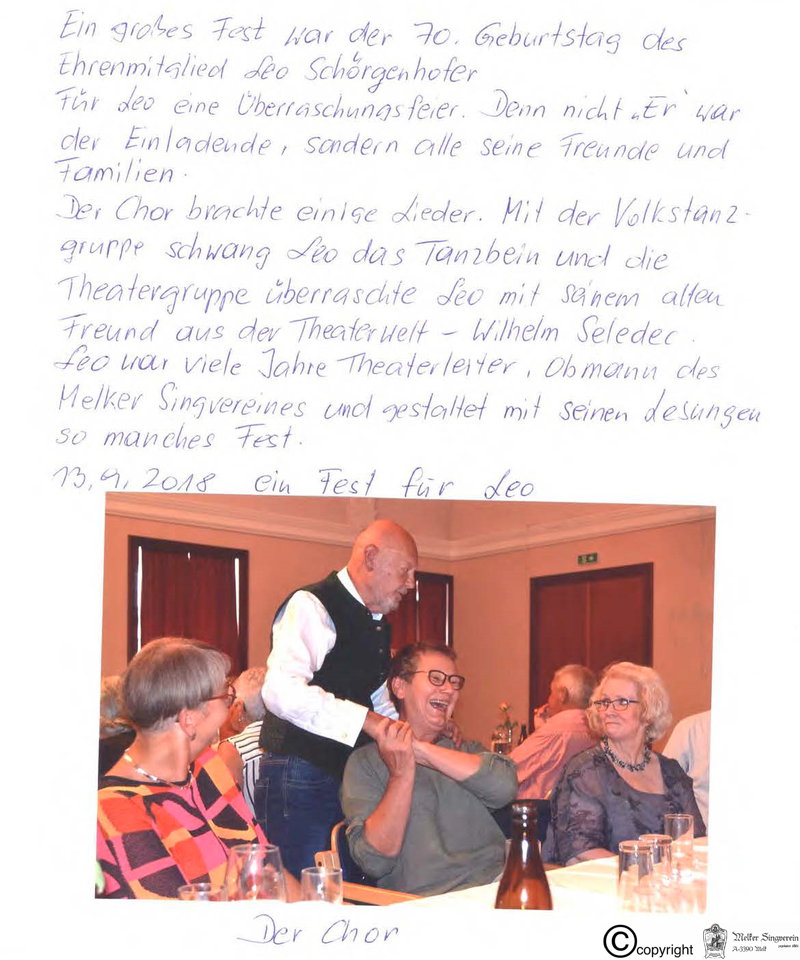 Ein großes Fest war der 70. Geburtstag des
Ehrenmitglied Leo Schörgenhofer
Für Leo eine Überraschungsfeier. Denn nicht „Er" war
der Einladende, sondern alle seine Freunde und
Familien.
Der Chor brachte einige Lieder. Mit der Volkstanz-
gruppe schwang Leo das Tanzbein und die
Theatergruppe überraschte Leo mit seinem alten
Freund aus der Theaterwelt – Wilhelm Seledec.
Leo war viele Jahre Theaterleiter, Obmann des
Melker Singvereines und gestaltet mit seinen Lesungen
so manches Fest.
13.9.2018 ein Fest für Leo
Der Chor
©copyright
Melker Singverein
A-3390 Melk